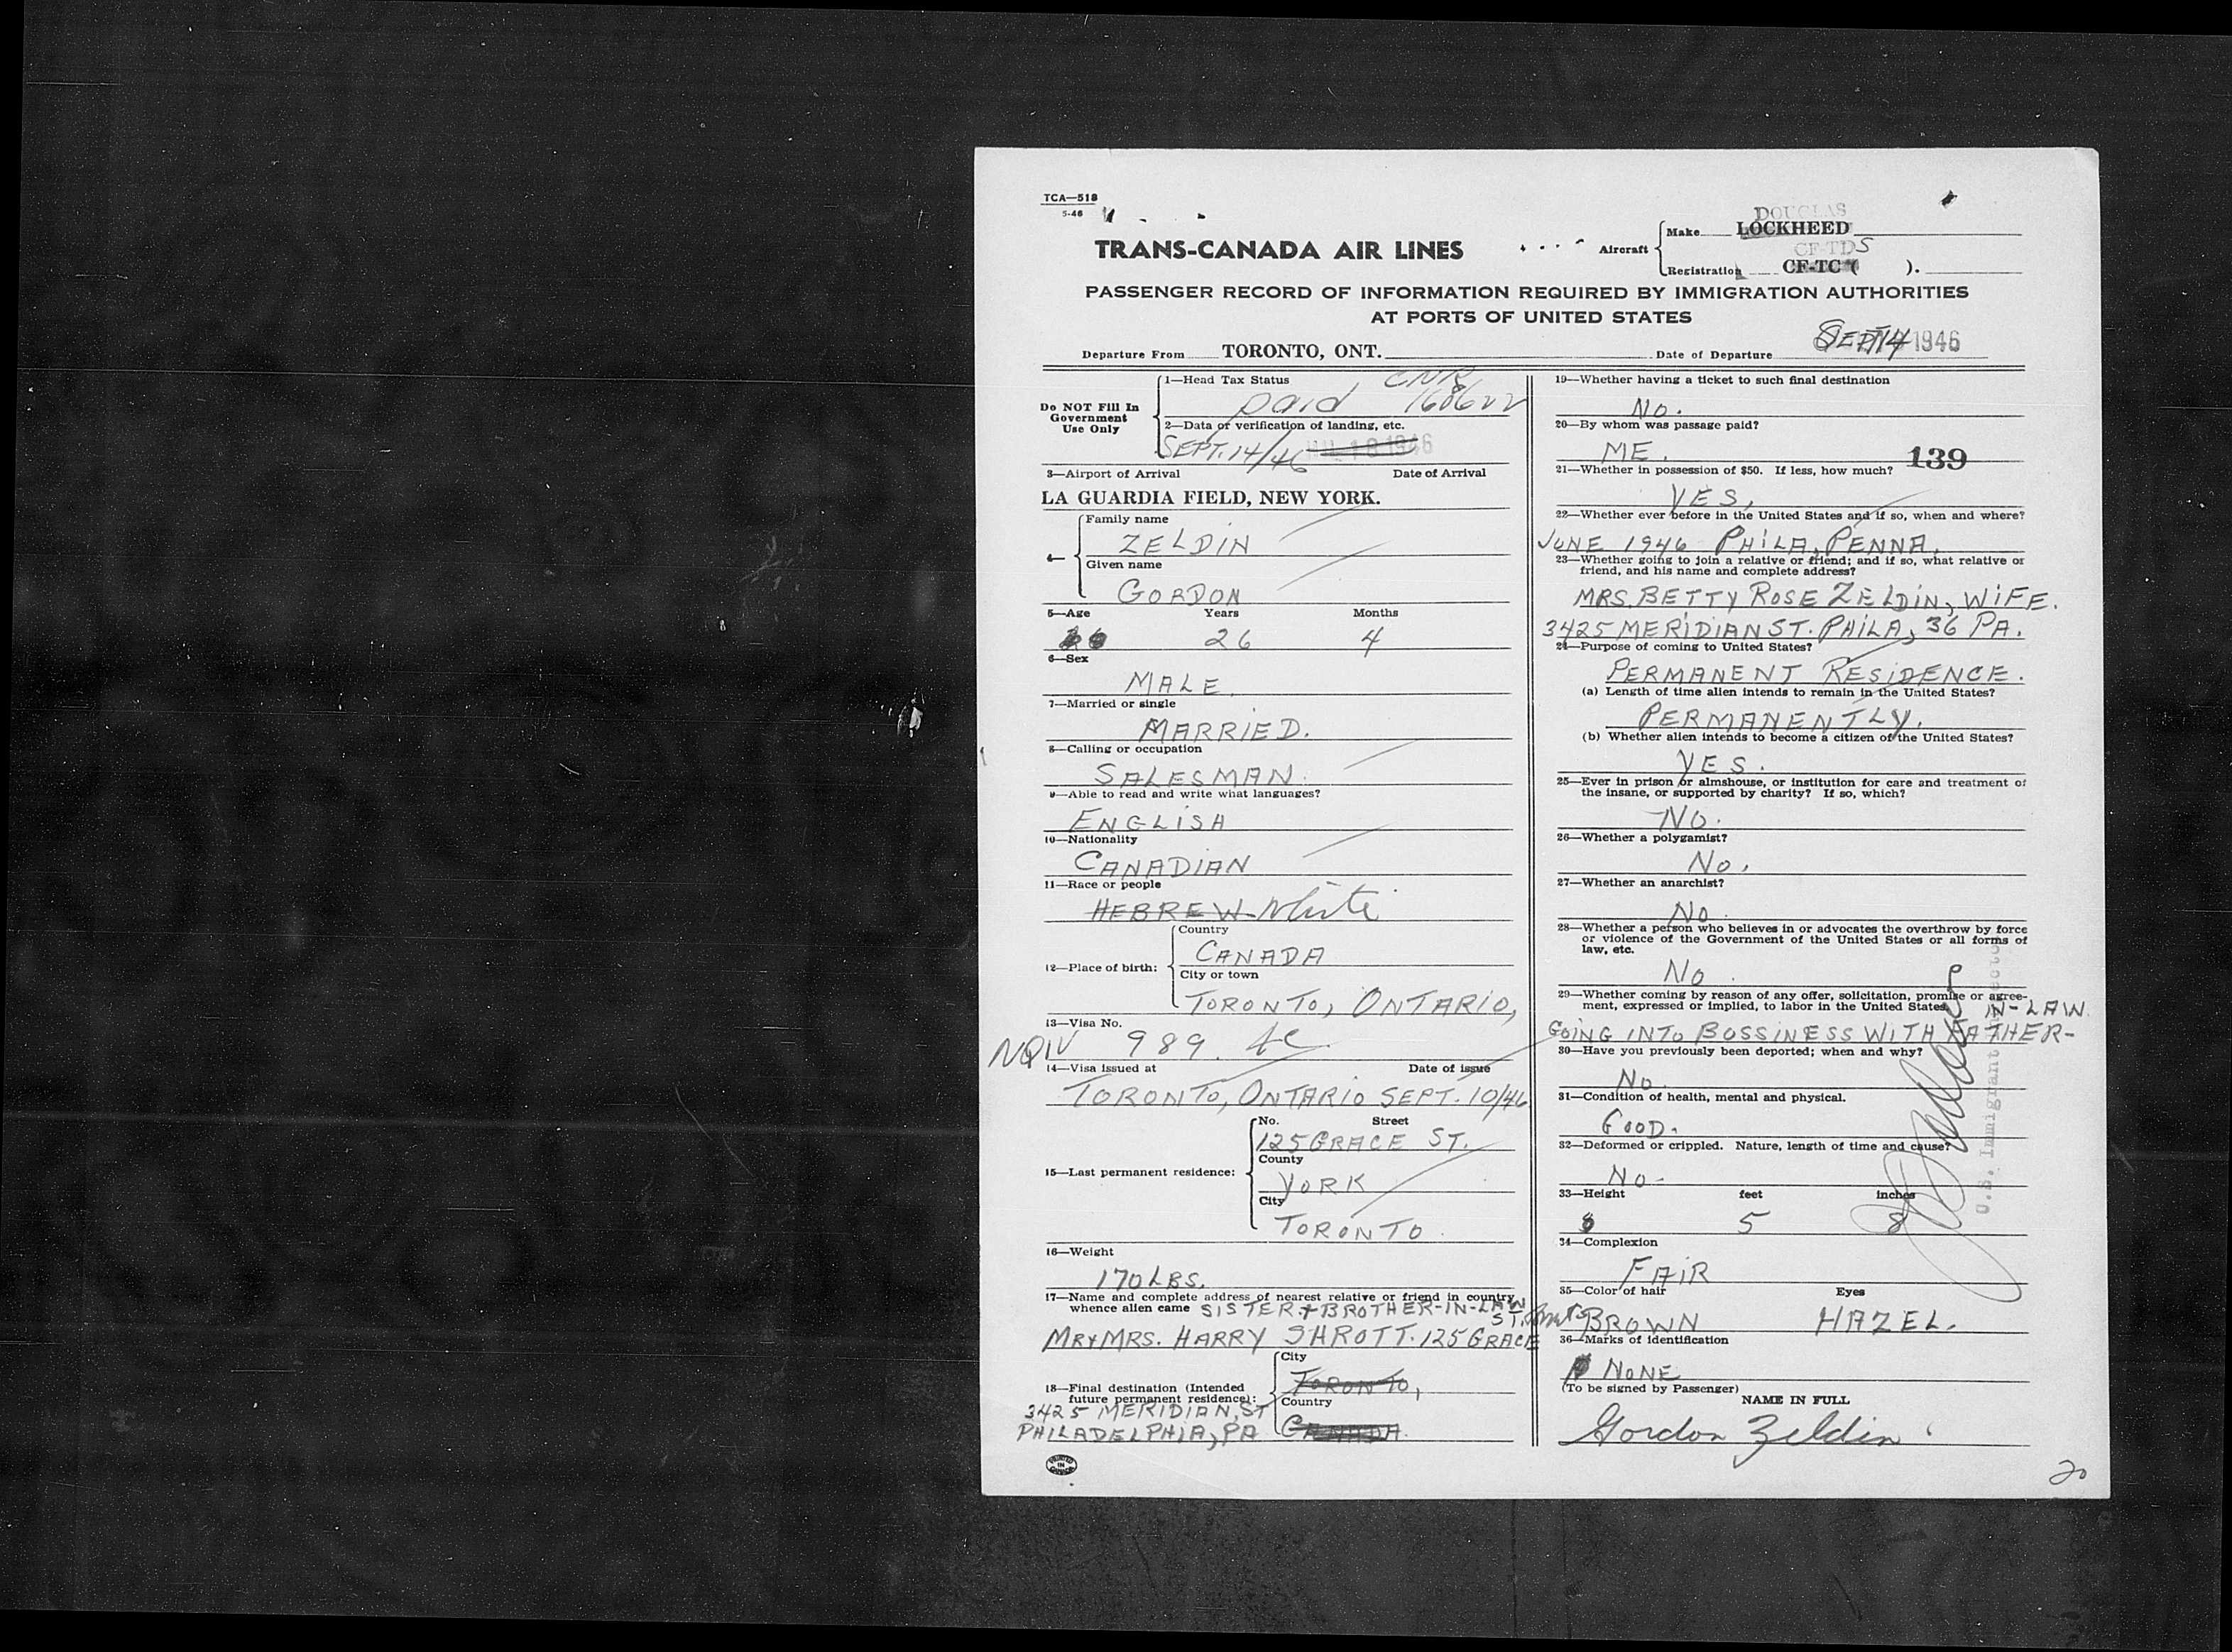 TCA—518
5-46
DOUGLAS
Make LOCKHEED
TRANS-CANADA AIR LINES
Aircraft
CF-TDS
Registration CF-TC ( ).
PASSENGER RECORD OF INFORMATION REQUIRED BY IMMIGRATION AUTHORITIES
AT PORTS OF UNITED STATES
Departure From TORONTO, ONT. Date of Departure SEPT 14 1946
Do NOT Fill In Government Use Only
1—Head Tax Status
paid 160622
2—Data or verification of landing, etc.
SEPT. 14/46
3—Airport of Arrival Date of Arrival
LA GUARDIA FIELD, NEW YORK.
4— Family name
ZELDIN
Given name
GORDON
5—Age Years Months
26 4
6—Sex
MALE.
7—Married or single
MARRIED.
8—Calling or occupation
SALESMAN.
9—Able to read and write what languages?
ENGLISH
10—Nationality
CANADIAN
11—Race or people
HEBREW White
12—Place of birth:
Country
CANADA
City or town
TORONTO, ONTARIO,
13—Visa No.
NQIV 989.
14—Visa issued at Date of issue
TORONTO, ONTARIO SEPT. 10/46
15—Last permanent residence:
No. Street
125 GRACE ST.
County
YORK
City
TORONTO.
16—Weight
170 LBS.
17—Name and complete address of nearest relative or friend in country
whence alien came SISTER & BROTHER-IN-LAW
ST.
MR & MRS. HARRY SHROTT. 125 GRACE
18—Final destination (Intended
future permanent residence):
3425 MERIDIAN, ST
PHILADELPHIA, PA
City
TORONTO,
Country
CANADA.
PRINTED IN CANADA
19—Whether having a ticket to such final destination
NO.
20—By whom was passage paid?
ME. 139
21—Whether in possession of $50. If less, how much?
YES.
22—Whether ever before in the United States and if so, when and where?
JUNE 1946 PHILA, PENNA.
23—Whether going to join a relative or friend; and if so, what relative or
friend, and his name and complete address?
MRS. BETTY ROSE ZELDIN, WIFE.
3425 MERIDIAN ST. PHILA, 36 PA.
24—Purpose of coming to United States?
PERMANENT RESIDENCE.
(a) Length of time alien intends to remain in the United States?
PERMANENTLY.
(b) Whether alien intends to become a citizen of the United States?
YES.
25—Ever in prison or almshouse, or institution for care and treatment of
the insane, or supported by charity? If so, which?
NO.
26—Whether a polygamist?
NO.
27—Whether an anarchist?
NO.
28—Whether a person who believes in or advocates the overthrow by force
or violence of the Government of the United States or all forms of
law, etc.
NO.
29—Whether coming by reason of any offer, solicitation, promise or agree-
ment, expressed or implied, to labor in the United States
IN-LAW
GOING INTO BOSSINESS WITH FATHER-
30—Have you previously been deported; when and why?
NO.
31—Condition of health, mental and physical.
GOOD.
32—Deformed or crippled. Nature, length of time and cause?
NO.
33—Height feet inches
5 8
34—Complexion
FAIR
35—Color of hair Eyes
BROWN HAZEL.
36—Marks of identification
NONE
(To be signed by Passenger)
NAME IN FULL
Gordon Zeldin
U.S. Immigrant Inspector
20